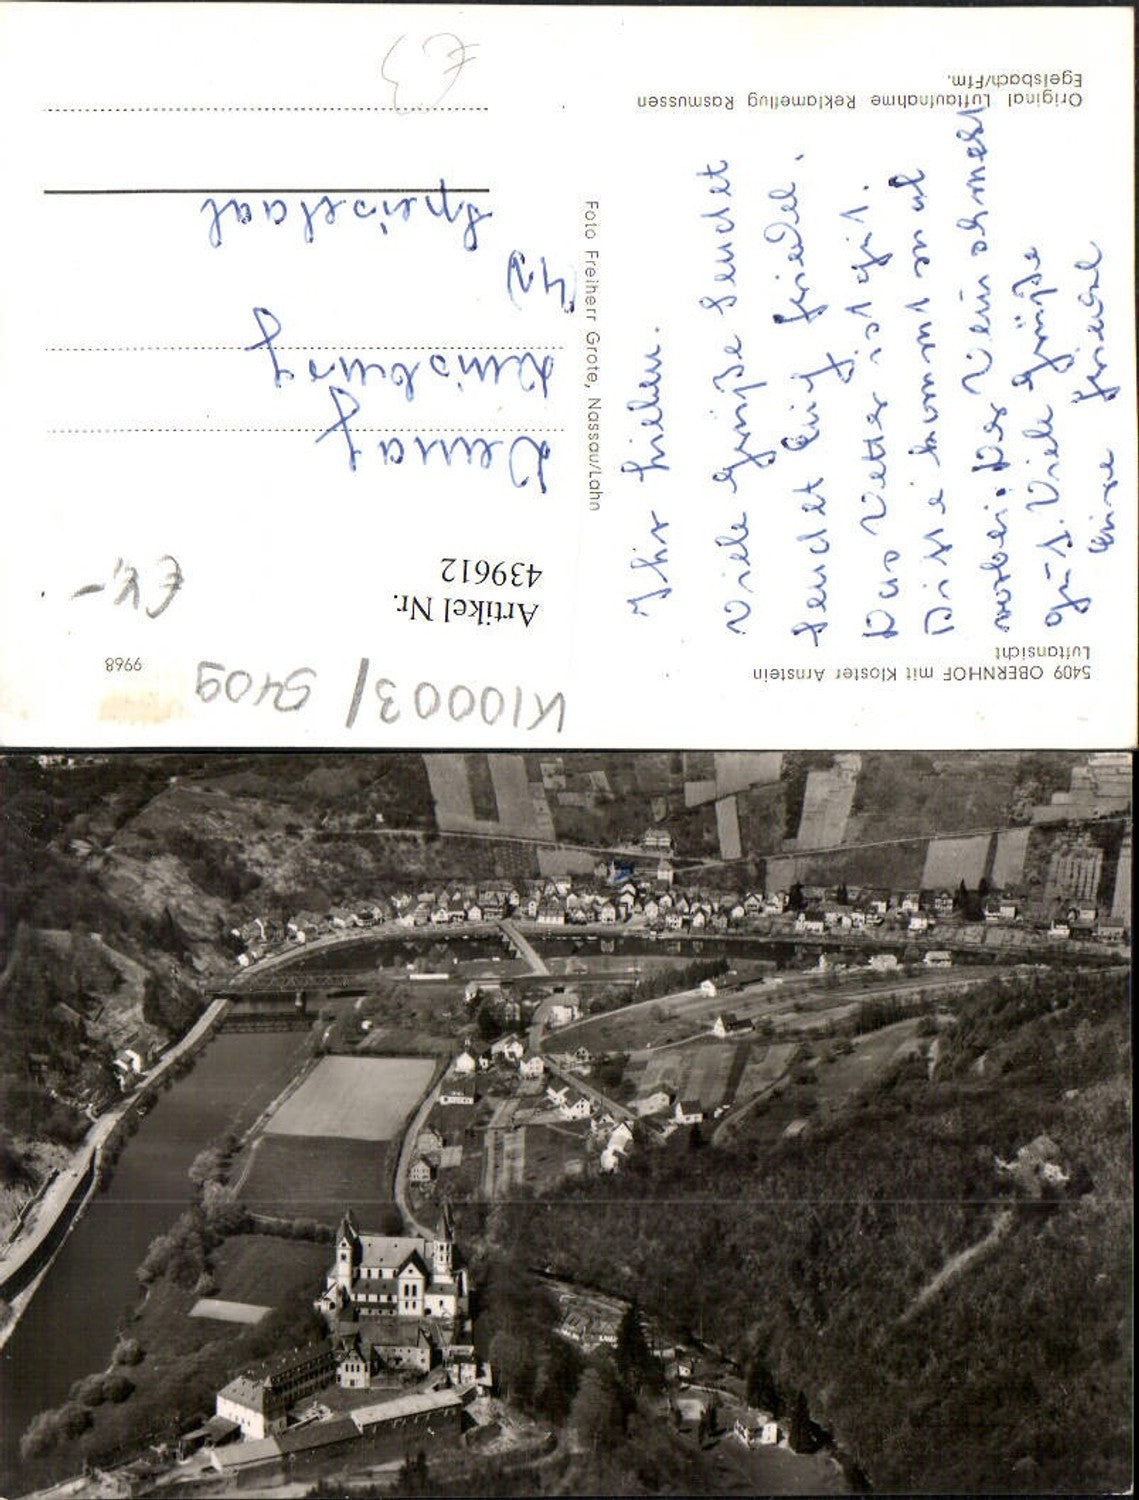 5409 OBERNHOF mit Kloster Arnstein
Luftansicht
Ihr lieben.
Viele Grüße sendet
sendet Euch Friedel.
Das Wetter ist gut.
vorbei. Der Wein schmeckt
gut. Viele Grüße
Eure Friedel
Original Luftaufnahme Reklameflug Rasmussen
Egelsbach/Ffm.
Foto Freiherr Grote, Nassau/Lahn
K10003/5409
9968
Artikel Nr.
439612
€4,-
Demag
Duisburg
Speisesaal
€3